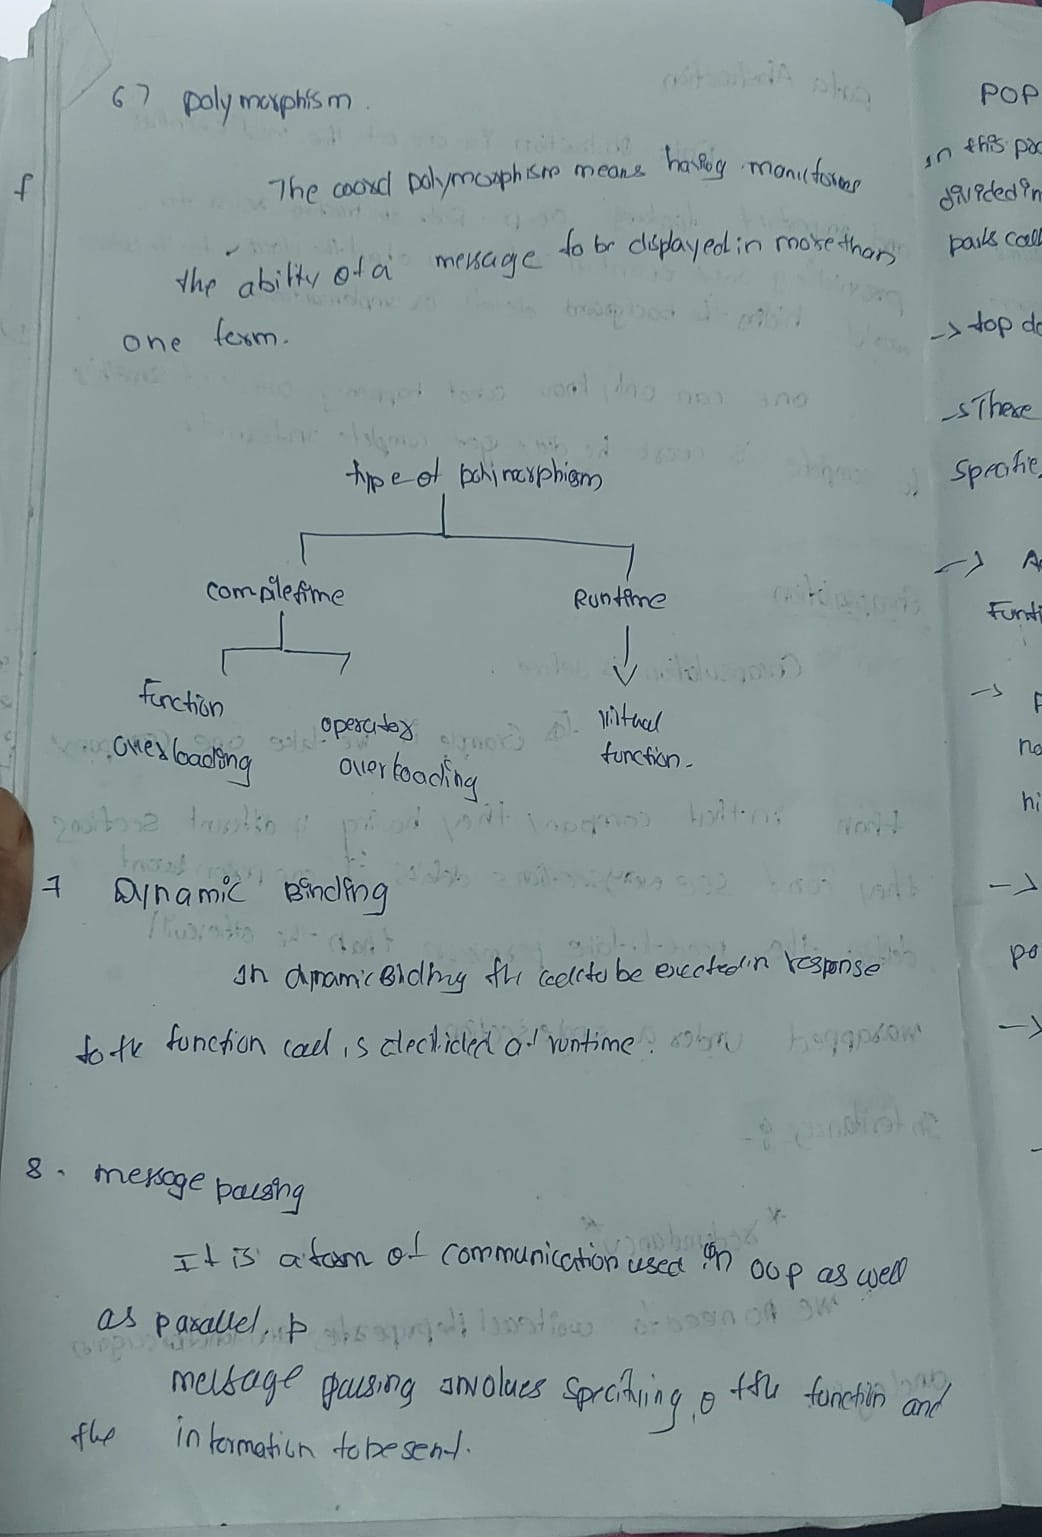 6) polymorphism.
The word polymorphism means having many forms
the ability of a message to be displayed in more than
one form.
type of polymorphism
compiletime
Runtime
function
overloading
operator
overloading
virtual
function.
7 Dynamic Binding
In dynamic Biding the code to be executed in response
to the function call is decided at runtime.
8. message passing
It is a form of communication used in oop as well
as parallel. p
message passing involves specifying the function and
the information to be sent.
POP
in this
divided in
parts call
-> top do
-> There
specific
->
Funti
->
no
hi
->
po
->